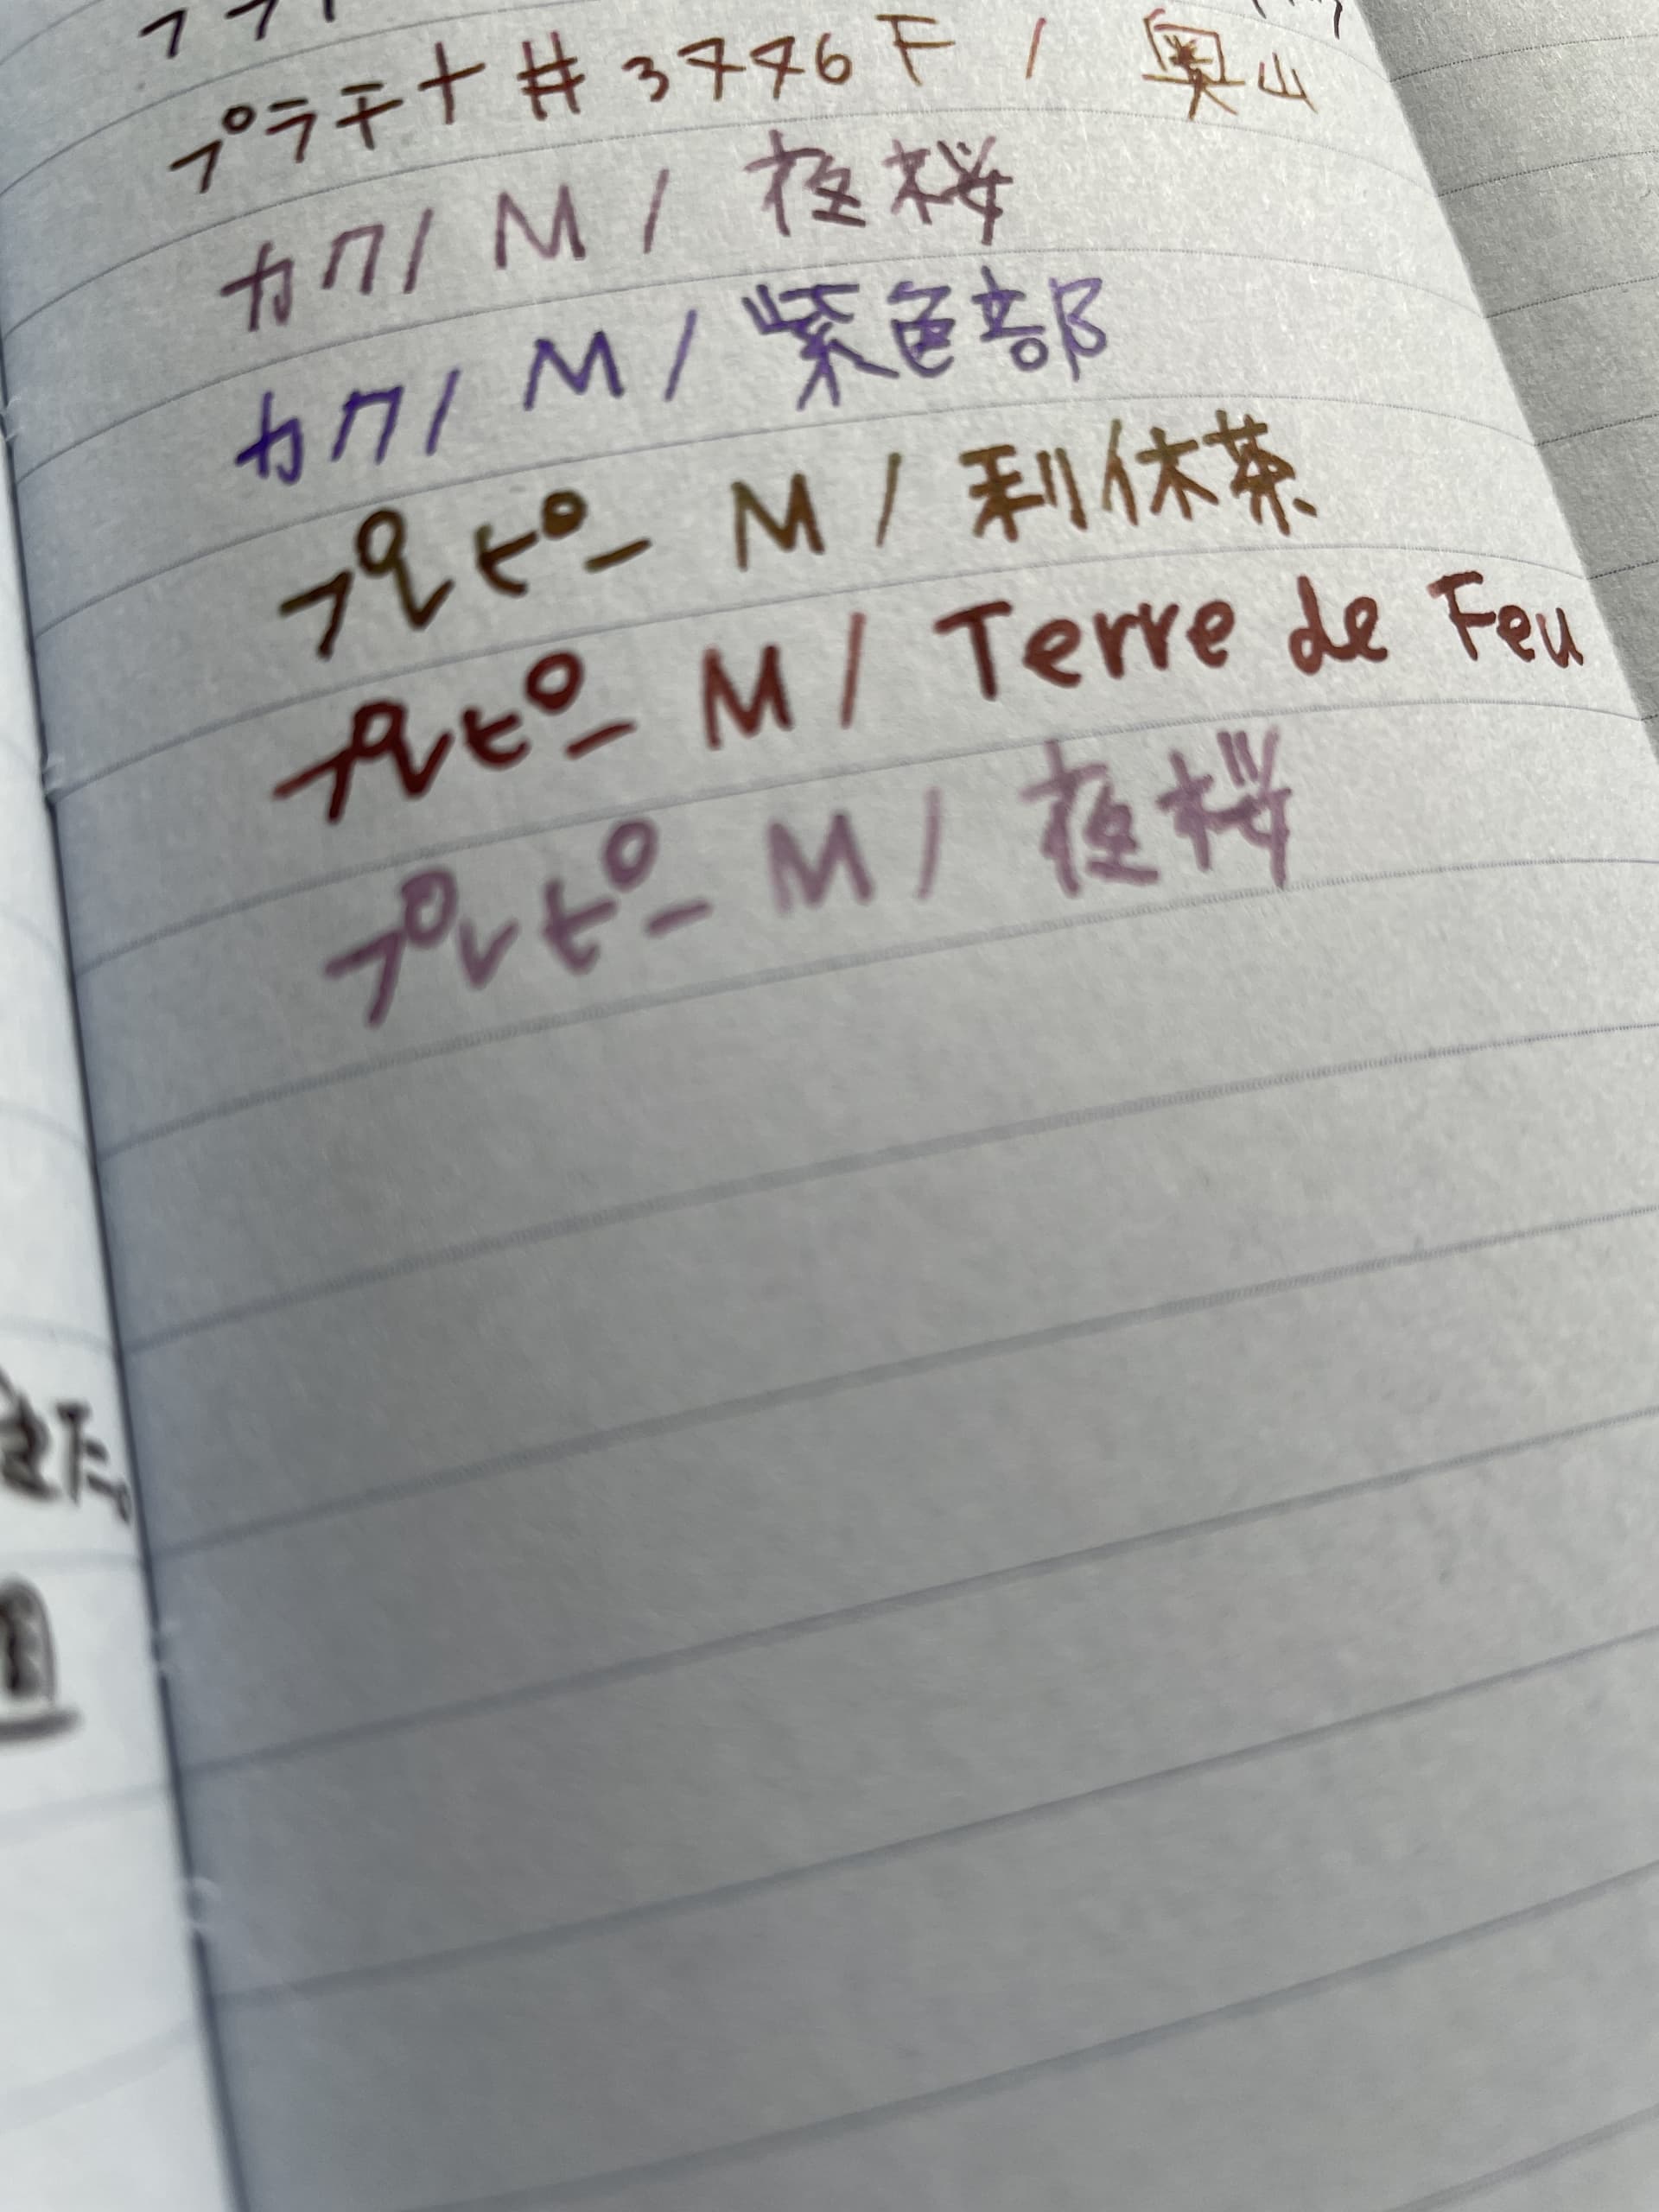 プラチナ#3776F / 奥山
カクノ M / 夜桜
カクノ M / 紫色部
プレピー M / 利休茶
プレピー M / Terre de Feu
プレピー M / 夜桜
きた。